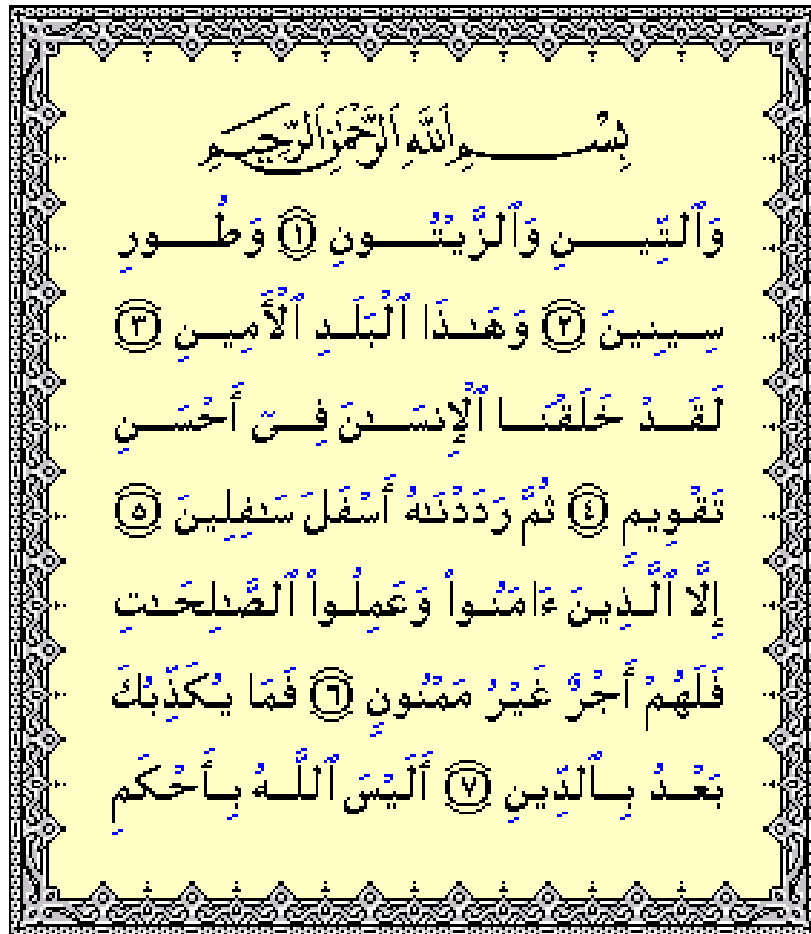 بِسْمِ اللَّهِ الرَّحْمَٰنِ الرَّحِيمِ
وَٱلتِّينِ وَٱلزَّيْتُونِ ١ وَطُورِ
سِينِينَ ٢ وَهَـٰذَا ٱلْبَلَدِ ٱلْأَمِينِ ٣
لَقَدْ خَلَقْنَا ٱلْإِنسَـٰنَ فِىٓ أَحْسَنِ
تَقْوِيمٍ ٤ ثُمَّ رَدَدْنَـٰهُ أَسْفَلَ سَـٰفِلِينَ ٥
إِلَّا ٱلَّذِينَ ءَامَنُوا۟ وَعَمِلُوا۟ ٱلصَّـٰلِحَـٰتِ
فَلَهُمْ أَجْرٌ غَيْرُ مَمْنُونٍ ٦ فَمَا يُكَذِّبُكَ
بَعْدُ بِٱلدِّينِ ٧ أَلَيْسَ ٱللَّهُ بِأَحْكَمِ